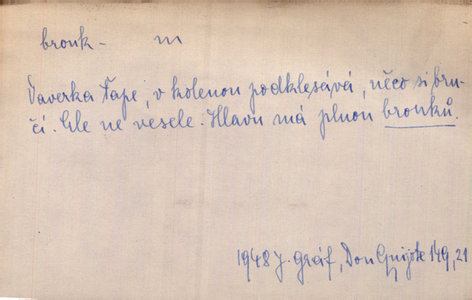 brouk - m
Paverka ťape, v kolenou podklesává, něco si bru-
čí. Ale ne vesele. Hlavu má plnou brouků.
1948 J. Gráf, Don Quijote 149, 21